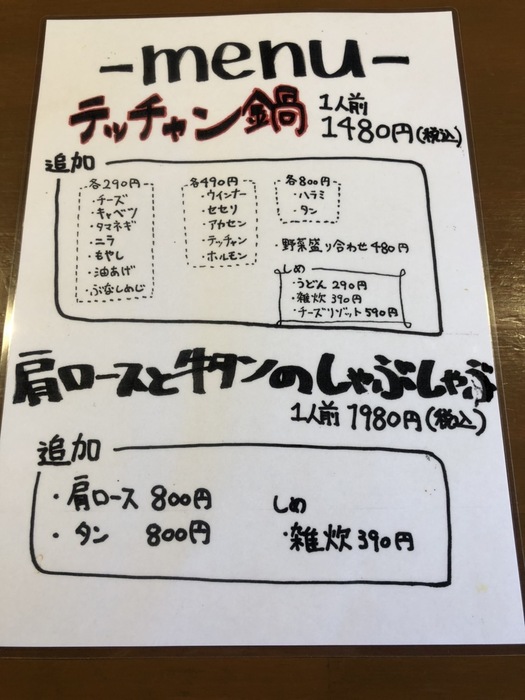 -menu-
テッチャン鍋 1人前 1480円(税込)
追加
各290円
・チーズ
・キャベツ
・タマネギ
・ニラ
・もやし
・油あげ
・ぶなしめじ
各490円
・ウインナー
・セセリ
・アカセン
・テッチャン
・ホルモン
各800円
・ハラミ
・タン
・野菜盛り合わせ 480円
しめ
・うどん 290円
・雑炊 390円
・チーズリゾット 590円
肩ロースと牛タンのしゃぶしゃぶ
1人前 1980円(税込)
追加
・肩ロース 800円
・タン 800円
しめ
・雑炊 390円